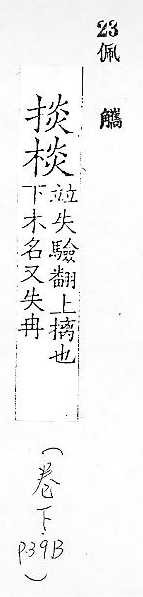 23
佩觿
掞棪
並失驗翻上摛也
下木名又失冉
(卷下
P39B)